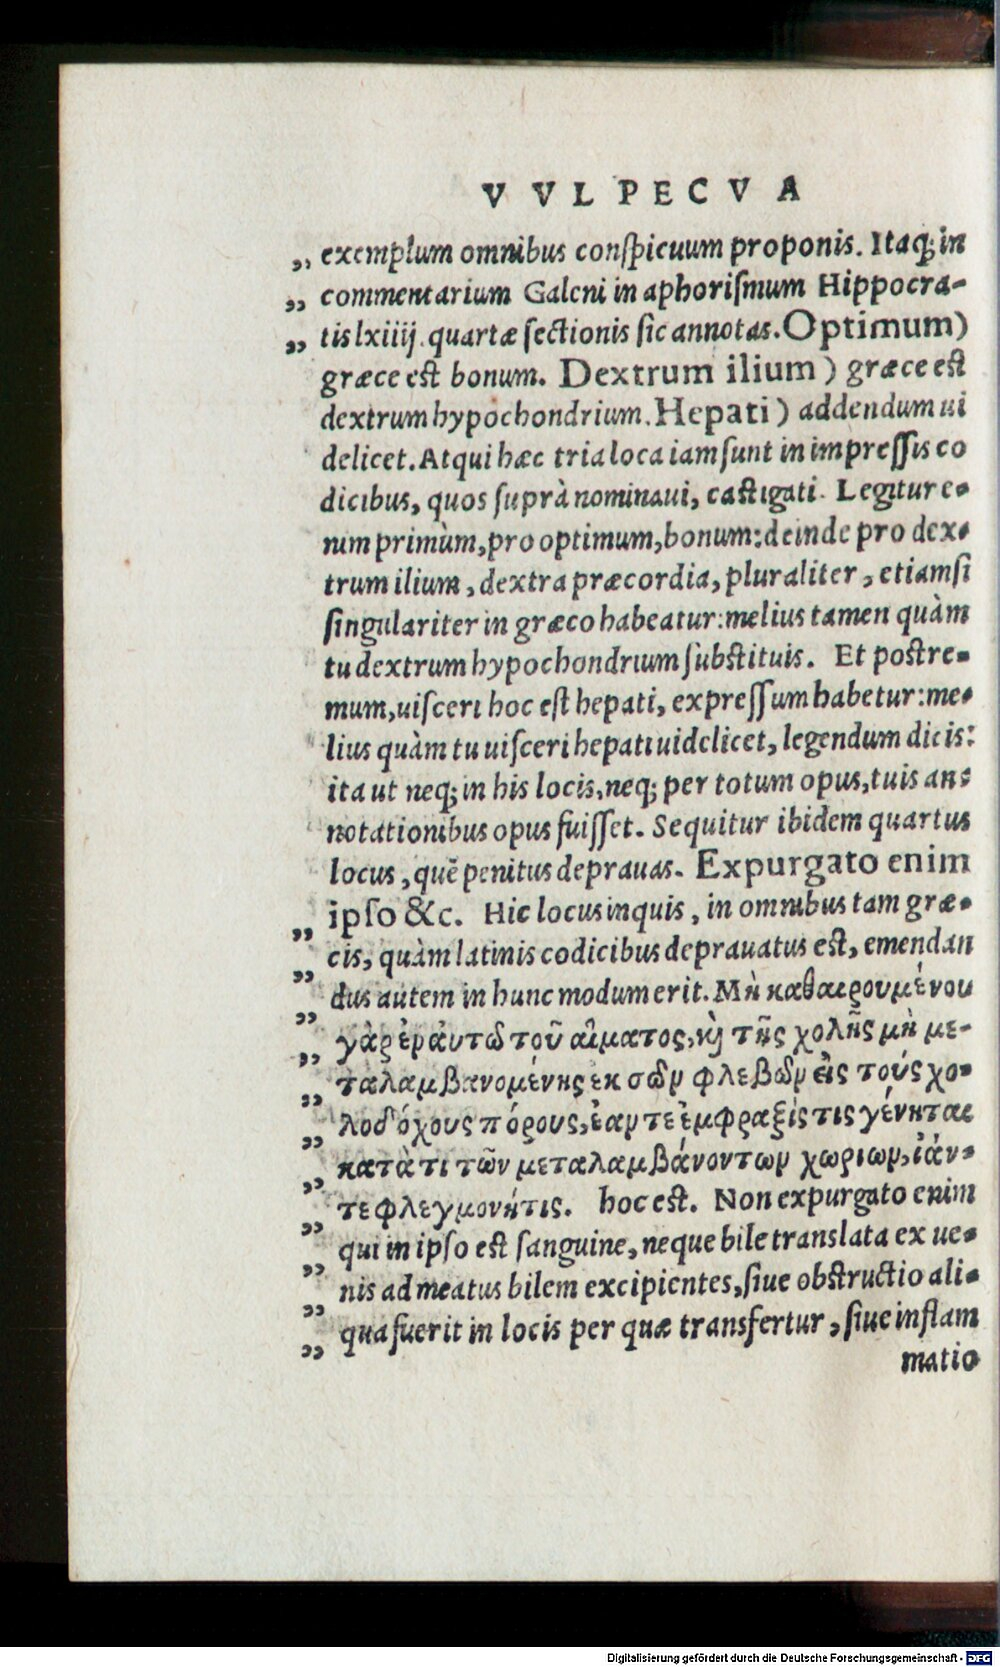 V V L P E C V A
„ exemplum omnibus conſpicuum proponis. Itaq; in
„ commentarium Galeni in aphoriſmum Hippocra-
„ tis lxiiij. quartæ ſectionis ſic annotas. Optimum)
græce est bonum. Dextrum ilium) græce est
dextrum hypochondrium. Hepati) addendum ui
delicet. Atqui hæc tria loca iam ſunt in impreſſis co
dicibus, quos ſuprà nominaui, castigati. Legitur e-
nim primùm, pro optimum, bonum: deinde pro dex-
trum ilium, dextra præcordia, pluraliter, etiamſi
ſingulariter in græco habeatur: melius tamen quàm
tu dextrum hypochondrium ſubstituis. Et postre-
mum, uiſceri hoc eſt hepati, expreſſum habetur: me-
lius quàm tu uiſceri hepati uidelicet, legendum dicis:
ita ut neq; in his locis, neq; per totum opus, tuis an-
notationibus opus fuiſſet. Sequitur ibidem quartus
locus, quẽ penitus deprauas. Expurgato enim
„ ipſo &c. Hic locus inquis, in omnibus tam græ-
„ cis, quàm latinis codicibus deprauatus est, emendan
„ dus autem in hunc modum erit. Μὴ καθαιρουμένου
„ γὰρ ἐν ἀυτῶ τοῦ αἵματος, καὶ τῆς χολῆς μὴ με-
„ ταλαμβανομένης ἐκ σῶν φλεβῶν εἰς τούς χο-
„ λοδόχους πόρους, ἐαν τε ἐμφραξίς τις γένηται
„ κατὰ τι τῶν μεταλαμβάνοντων χωριων, ἰάν-
„ τε φλεγμονήτις. hoc est. Non expurgato enim
„ qui in ipſo est ſanguine, neque bile translata ex ue-
„ nis ad meatus bilem excipientes, ſiue obstructio ali-
„ qua fuerit in locis per quæ transfertur, ſiue inflam
matio
Digitalisierung gefördert durch die Deutsche Forschungsgemeinschaft - DFG